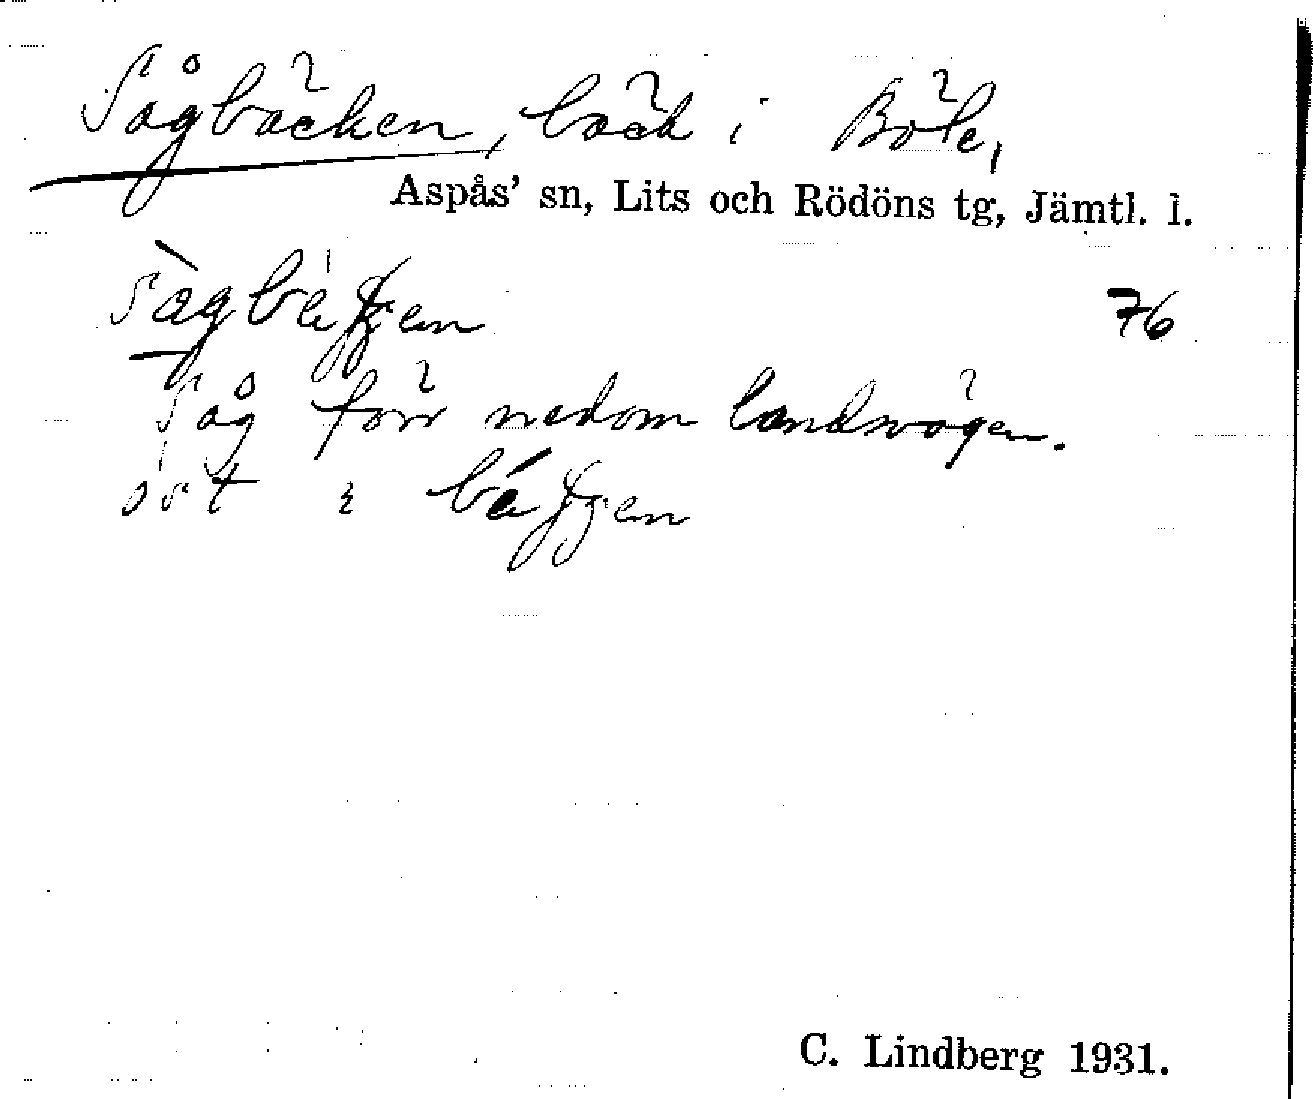 Sågbäcken, bäck i Böle,
Aspås' sn, Lits och Rödöns tg, Jämtl. l.
76
Såg förr nedom landsvägen.
C. Lindberg 1931.